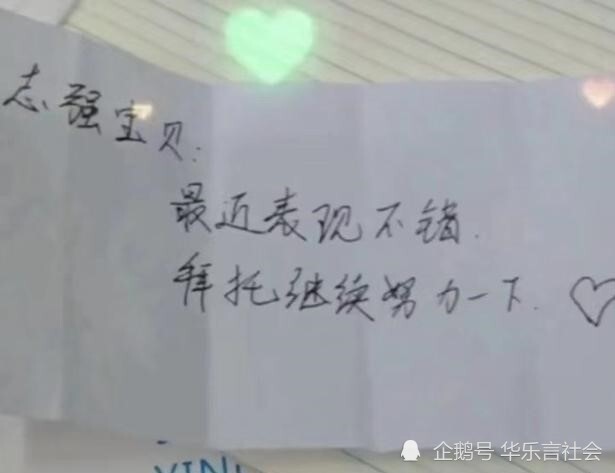 志强宝贝:
最近表现不错.
拜托继续努力一下.
企鹅号 华乐言社会